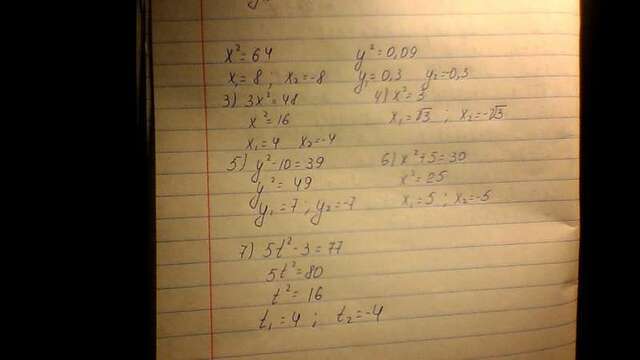 x²=64
x₁=8 ; x₂=-8
y²=0,09
y₁=0,3 y₂=0,3
3) 3x²=48
x²=16
x₁=4 x₂=-4
4) x²=3
x₁=√3 ; x₂=-√3
5) y²-10=39
y²=49
y₁=7 ; y₂=-7
6) x²+5=30
x²=25
x₁=5 ; x₂=-5
7) 5t²-3=77
5t²=80
t²=16
t₁=4 ; t₂=-4